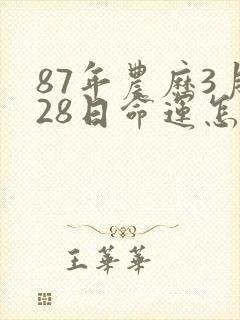 87年農麻3月
28日命運怎
王華華